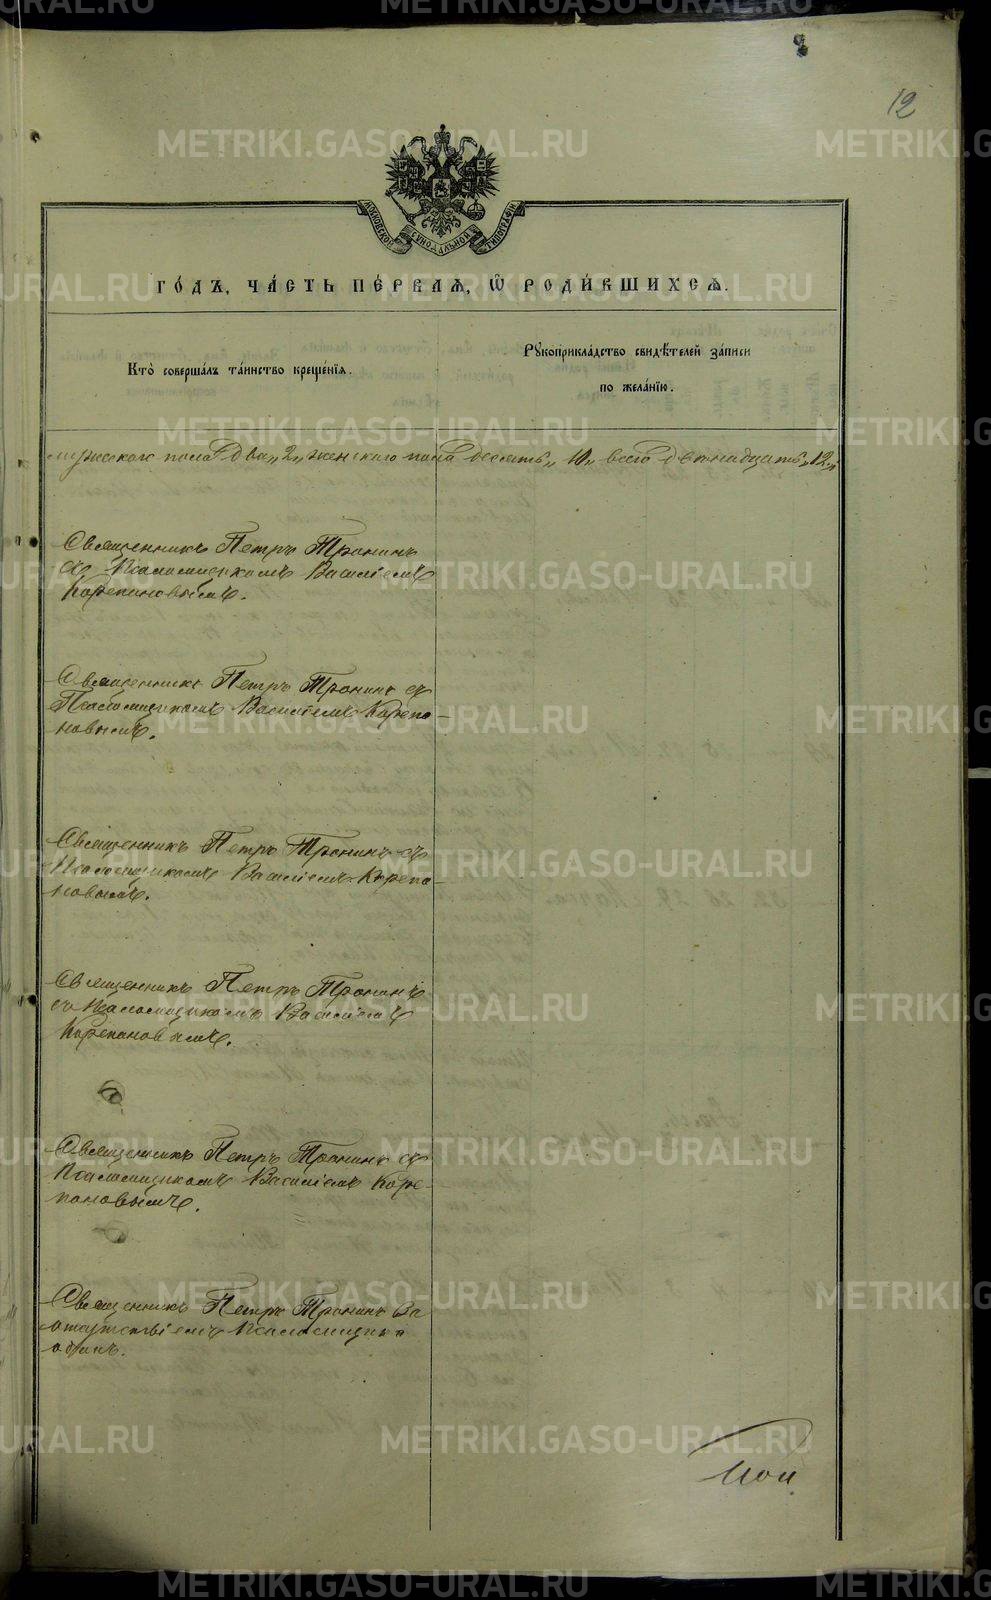 12
МОСКОВСКОЙ СѴНОДАЛЬНОЙ ТИПОГРАФІИ
ГО́ДЪ, ЧА́СТЬ ПЕ́РВАѦ, Ѽ РОДИ́ВШИХСѦ.
Кто̀ совершалъ та́инство креще́нїѧ.
Рꙋкоприкла́дство свидѣ́телей за́писи
по жела́нїю.
мужескаго пола два „2„ женскаго пола десять „10„ всего двѣнадцать „12„
Священникъ Петръ Тронинъ
съ Псаломщикомъ Василіемъ
Корепановымъ.
Священникъ Петръ Тронинъ съ
Псаломщикомъ Василіемъ Корепа-
новымъ.
Священникъ Петръ Тронинъ съ
Псаломщикомъ Василіемъ Корепа-
новымъ.
Священникъ Петръ Тронинъ
съ Псаломщикомъ Василіемъ
Корепановымъ.
Священникъ Петръ Тронинъ съ
Псаломщикомъ Василіемъ Коре-
пановымъ.
Священникъ Петръ Тронинъ за
отсутствіемъ Псаломщика
одинъ.
METRIKI.GASO-URAL.RU